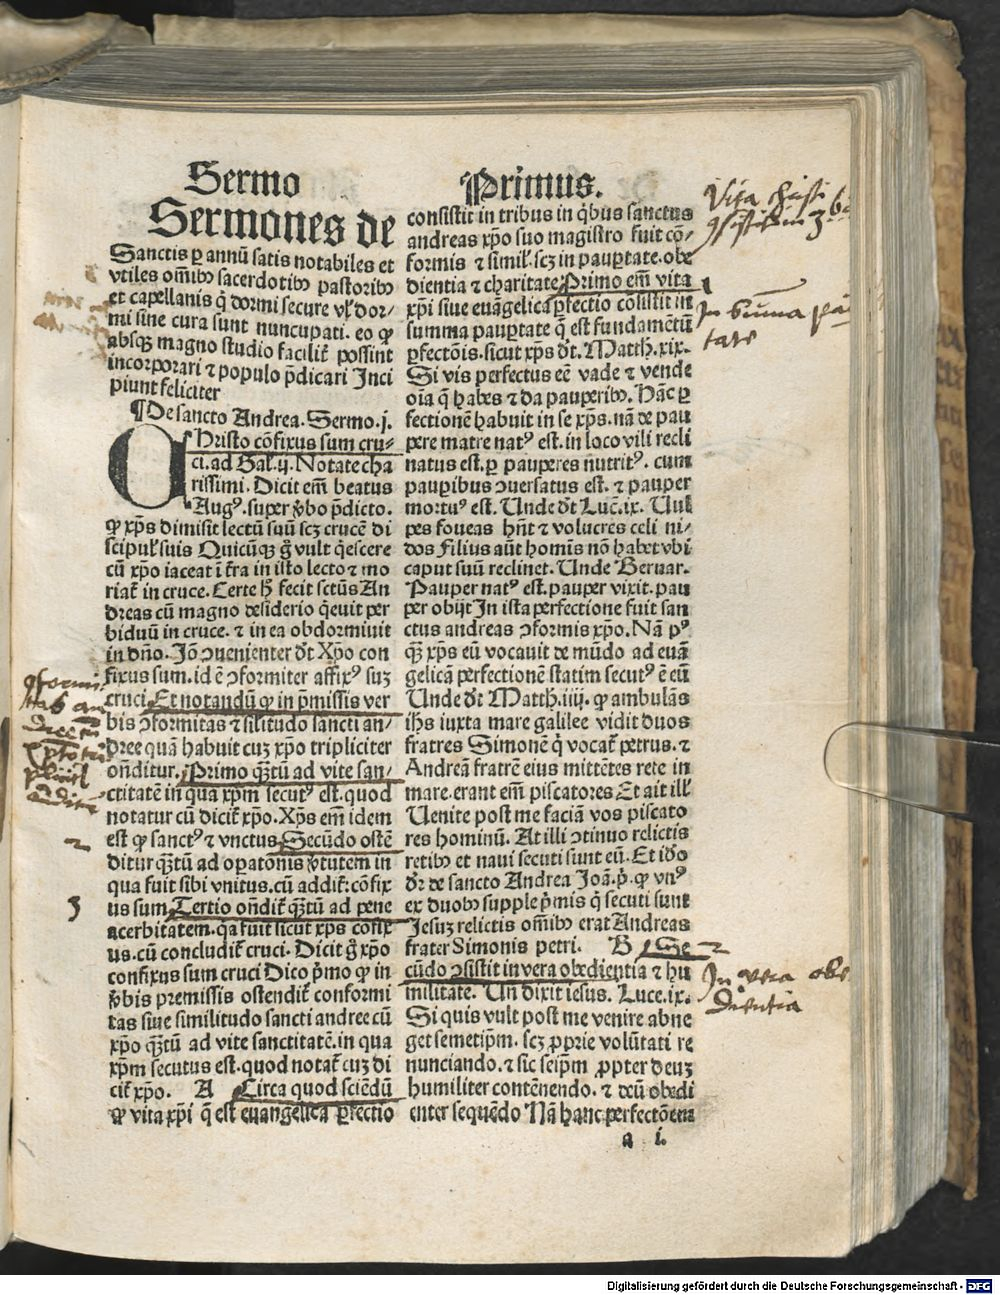 Sermo
Sermones de
Sanctis ꝑ annū satis notabiles et
vtiles om̄ibꝰ sacerdotibꝰ pastoribꝰ
et capellanis q̇ dormi secure vl̓ dor-
mi sine cura sunt nuncupati. eo ꝙ
absqꝫ magno studio facilit̓ possint
incorporari ⁊ populo p̄dicari Inci
piunt feliciter
¶ De sancto Andrea. Sermo .j.
CHristo cōfixus sum cru-
ci. ad Gal̓. ij. Notate cha
rissimi. Dicit em̄ beatus
Augꝰ. super ꝟbo p̄dicto.
ꝙ xp̄s dimisit lectū suū scꝫ crucē di
scipul̓ suis Quicūqꝫ g̊ vult q̇escere
cū xp̄o iaceat ī t̓ra in isto lecto ⁊ mo
riat̓ in cruce. Certe h̓ fecit sctūs An
dreas cū magno desiderio q̇euit per
biduū in cruce. ⁊ in ea obdormiuit
in dn̄o. Jō ↄuenienter dt̓ Xp̄o con
fixus sum. id ē ↄformiter affixꝰ suꝫ
cruci Et notandū ꝙ in p̄missis ver
bis ↄformitas ⁊ sil̓itudo sancti an-
dree quā habuit cuꝫ xp̄o tripliciter
on̄ditur. Primo qꝫtū ad vite san-
ctitatē in qua xp̄m secutꝰ est. quod
notatur cū dicit̓ xp̄o. Xp̄s em̄ idem
est ꝙ sanctꝰ ⁊ vnctus Secūdo ostē
ditur qꝫtū ad oꝑatōnis ꝟtutem in
qua fuit sibi vnitus. cū addit̓: cōfix
us sum Tertio on̄dit̓ qꝫtū ad pene
acerbitatem. qa fuit sicut xp̄s cōfix
us. cū concludit̓ cruci. Dicit g̊ xp̄o
confixus sum cruci Dico p̓mo ꝙ in
ꝟbis premissis ostendit̓ conformi
tas siue similitudo sancti andree cū
xp̄o qꝫtū ad vite sanctitatē. in qua
xp̄m secutus est. quod notat̓ cuꝫ di
cit̓ xp̄o. A Circa quod sciēdū
ꝙ vita xp̄i q̄ est euangelica ꝑfectio
Primus.
consistit in tribus in q̇bus sanctus
andreas xp̄o suo magistro fuit cō-
formis ⁊ simil̓. scꝫ in pauꝑtate. obe
dientia ⁊ charitate Primo em̄ vita
xp̄i siue euāgelica ꝑfectio cōsistit in
summa pauꝑtate q̄ est fundamētū
ꝑfectōis. sicut xp̄s dt̓. Matth. xix.
Si vis perfectus eē vade ⁊ vende
oīa q̄ habes ⁊ da pauperibꝰ. Hāc ꝑ
fectionē habuit in se xp̄s. nā de pau
pere matre natꝰ est. in loco vili recli
natus est. ꝑ pauperes nutritꝰ. cum
pauꝑibus ↄuersatus est. ⁊ pauper
mortuꝰ est. Unde dt̓ Luc̄. ix. Uul
pes foueas hn̄t ⁊ volucres celi ni-
dos Filius aūt homīs nō habet vbi
caput suū reclinet. Unde Bernar.
Pauper natꝰ est. pauper vixit. pau
per obijt In ista perfectione fuit san
ctus andreas ↄformis xp̄o. Nā pꝰ
qꝫ xp̄s eū vocauit de mūdo ad euā
gelicā perfectionē statim secutꝰ ē eū
Unde dt̓ Matth. iiij. ꝙ ambulās
ihs iuxta mare galilee vidit duos
fratres Simonē q̇ vocat̓ petrus. ⁊
Andreā fratrē eius mittētes rete in
mare. erant em̄ piscatores Et ait ill̓
Uenite post me faciā vos piscato
res hominū. At illi ↄtinuo relictis
retibꝰ et naui secuti sunt eū. Et iō
dr̓ de sancto Andrea Joā. p̓. ꝙ vnꝰ
ex duobꝰ supple p̓mis q̇ secuti sunt
Jesuꝫ relictis om̄ibꝰ erat Andreas
frater Simonis petri. B Se
cūdo ↄsistit in vera obedientia ⁊ hu
militate. Un̄ dixit iesus. Luce. ix.
Si quis vult post me venire abne
get semetip̄m. scꝫ ꝓprie volūtati re
nunciando. ⁊ sic seip̄m ꝓpter deuꝫ
humiliter contēnendo. ⁊ deū obedi
enter sequēdo Nā hanc perfectōem
a i.
Vita christi
ↄsistit in 3bꝰ
1
In summa pau
tate
2
In vera obe
dientia
ↄformi
tas an
dree cū
xp̄o tri
pliciter
ondit̄
2
3
Digitalisierung gefördert durch die Deutsche Forschungsgemeinschaft - DFG